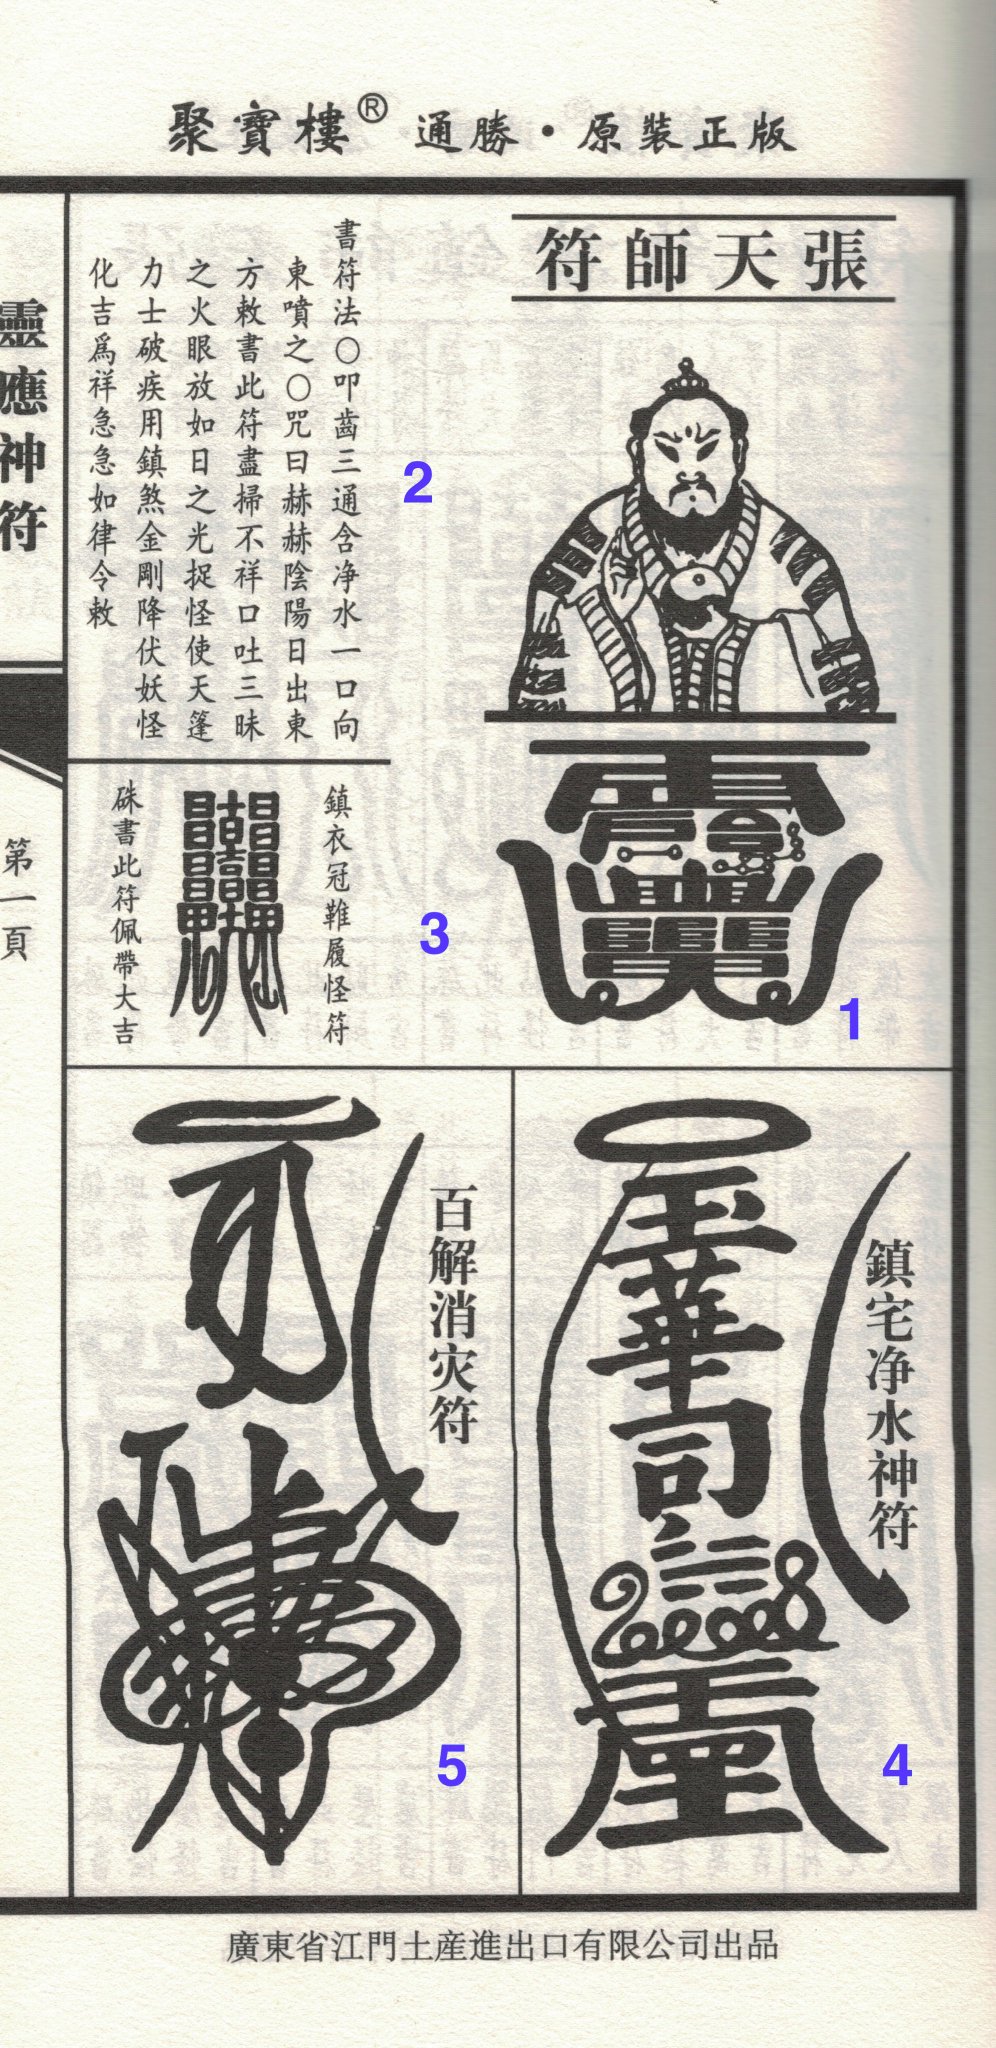 聚寶樓® 通勝·原裝正版
張天師符
書符法〇叩齒三通含净水一口向
東噴之〇咒曰赫赫陰陽日出東
方敕書此符盡掃不祥口吐三昧
之火眼放如日之光捉怪使天篷
力士破疾用鎮煞金剛降伏妖怪
化吉爲祥急急如律令敕
2
1
鎮衣冠雞履怪符
硃書此符佩帶大吉
3
鎮宅净水神符
玉華司
4
百解消灾符
5
靈應神符
第一頁
廣東省江門土産進出口有限公司出品